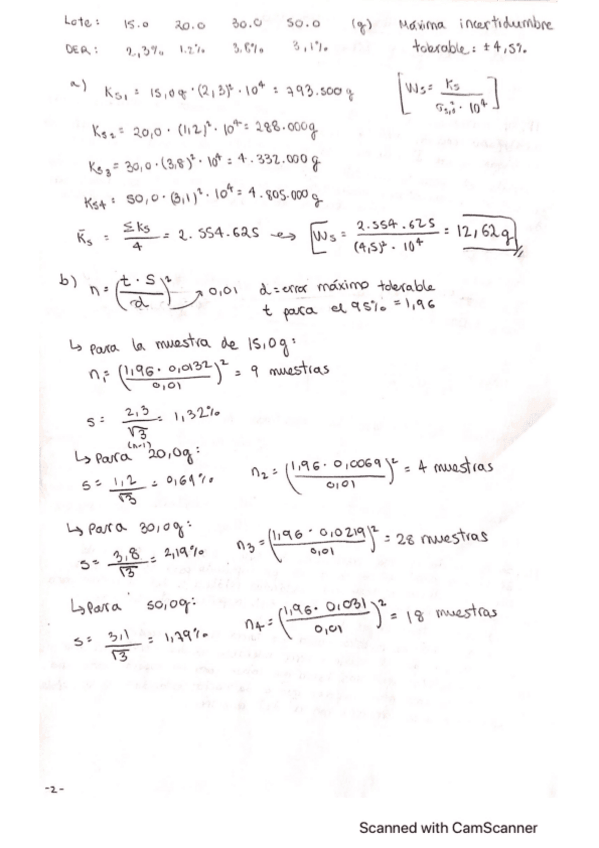 Lote: 15.0 20.0 30.0 50.0 (g) Máxima incertidumbre
DER: 2,3% 1.2% 3.8% 3,1% tolerable: ± 4,5%.
a) Ks1 = 15,0g · (2,3)² · 10⁴ = 793.500 g [Ws = Ks / σs,s² · 10⁴]
Ks2 = 20,0 · (1,2)² · 10⁴ = 288.000g
Ks3 = 30,0 · (3,8)² · 10⁴ = 4.332.000 g
Ks4 = 50,0 · (3,1)² · 10⁴ = 4.805.000 g
K̄s = ΣKs / 4 = 2.554.625 → Ws = 2.554.625 / (4,5)² · 10⁴ = 12,62g
b) n = (t · S / d)² → 0,01 d = error máximo tolerable
t para el 95% = 1,96
↳ Para la muestra de 15,0g:
n1 = (1,96 · 0,0132 / 0,01)² = 9 muestras
s = 2,3 / √3 = 1,32%
(n-1)
↳ Para 20,0g:
s = 1,2 / √3 = 0,69% n2 = (1,96 · 0,0069 / 0,01)² = 4 muestras
↳ Para 30,0g:
s = 3,8 / √3 = 2,19% n3 = (1,96 · 0,0219 / 0,01)² = 28 muestras
↳ Para 50,0g:
s = 3,1 / √3 = 1,79% n4 = (1,96 · 0,031 / 0,01)² = 18 muestras
-2-
Scanned with CamScanner